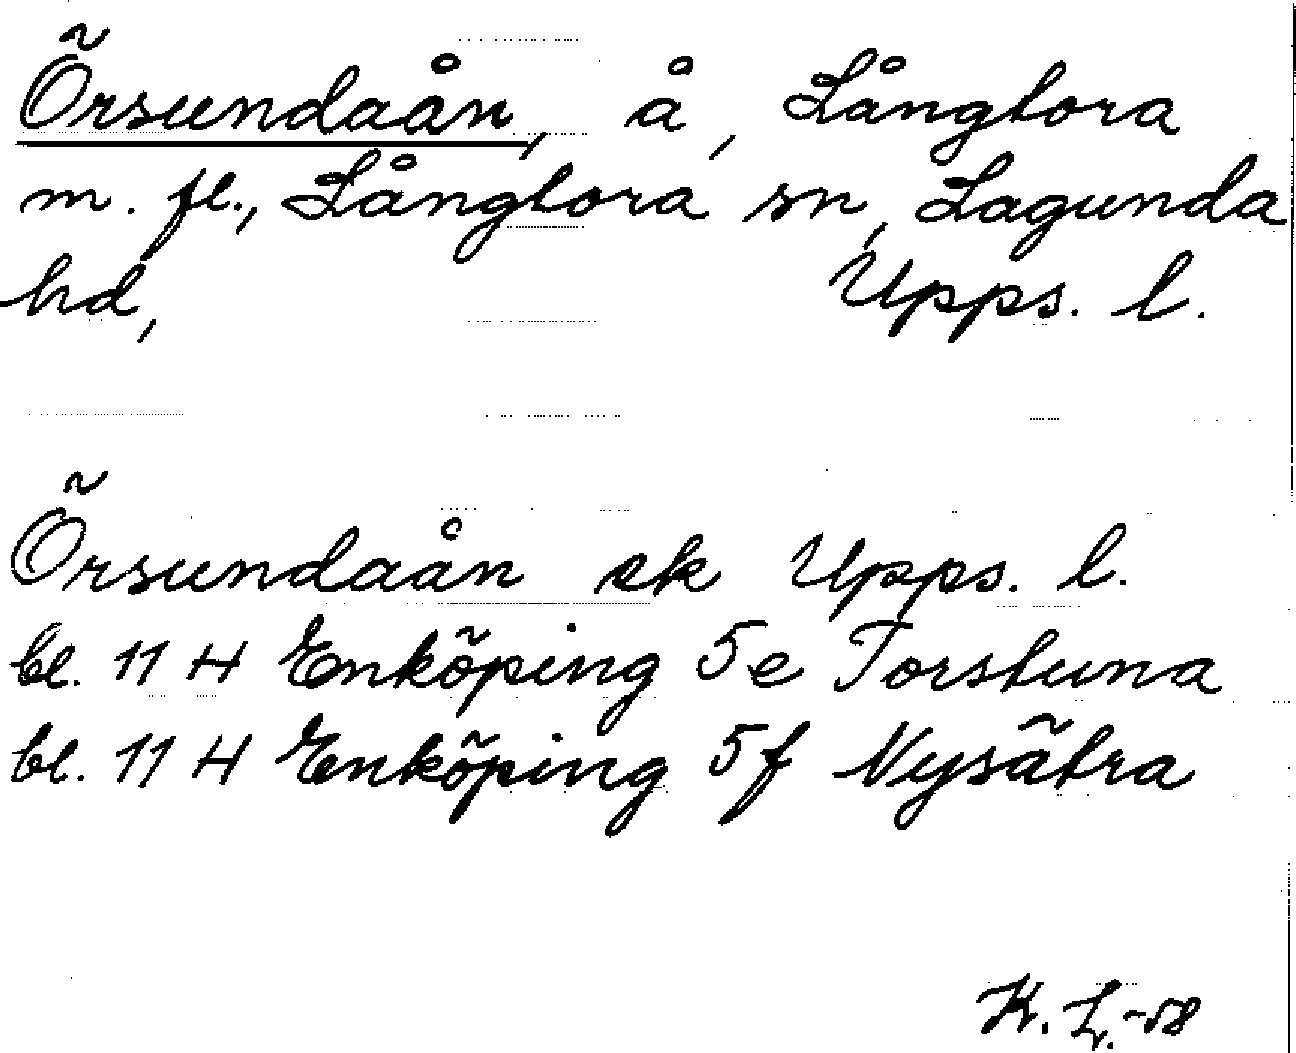 Örsundaån, å, Långtora
m. fl., Långtora sn, Lagunda
hd, Upps. l.
Örsundaån ek Upps. l.
bl. 11 H Enköping 5e Torstuna
bl. 11 H Enköping 5f Nysätra
K. L. -58